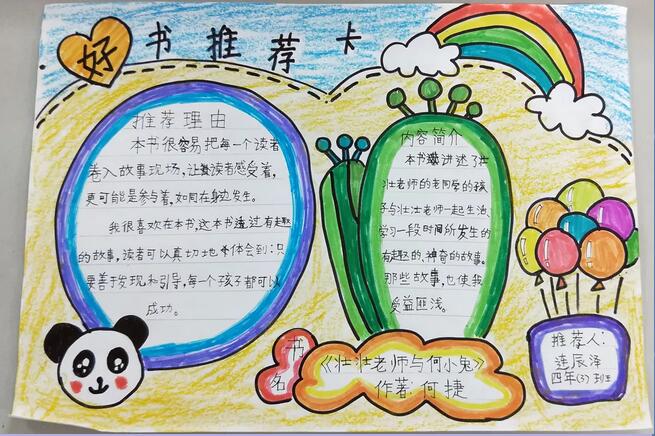 好书推荐卡
推荐理由
本书很容易把每一个读者
卷入故事现场,让读者感受着,
更可能是参与着,如同在身边发生。
我很喜欢在本书,这本书透过有趣
的故事,读者可以真切地体会到:只
要善于发现和引导,每一个孩子都可以
成功。
内容简介
本书讲述了壮
壮老师的老同学的孩
子与壮壮老师一起生活、
学习一段时间所发生的
有趣的、神奇的故事。
那些故事,也使我
受益匪浅。
书名
《壮壮老师与何小兔》
作者:何捷
推荐人:
连辰泽
四年(3)班